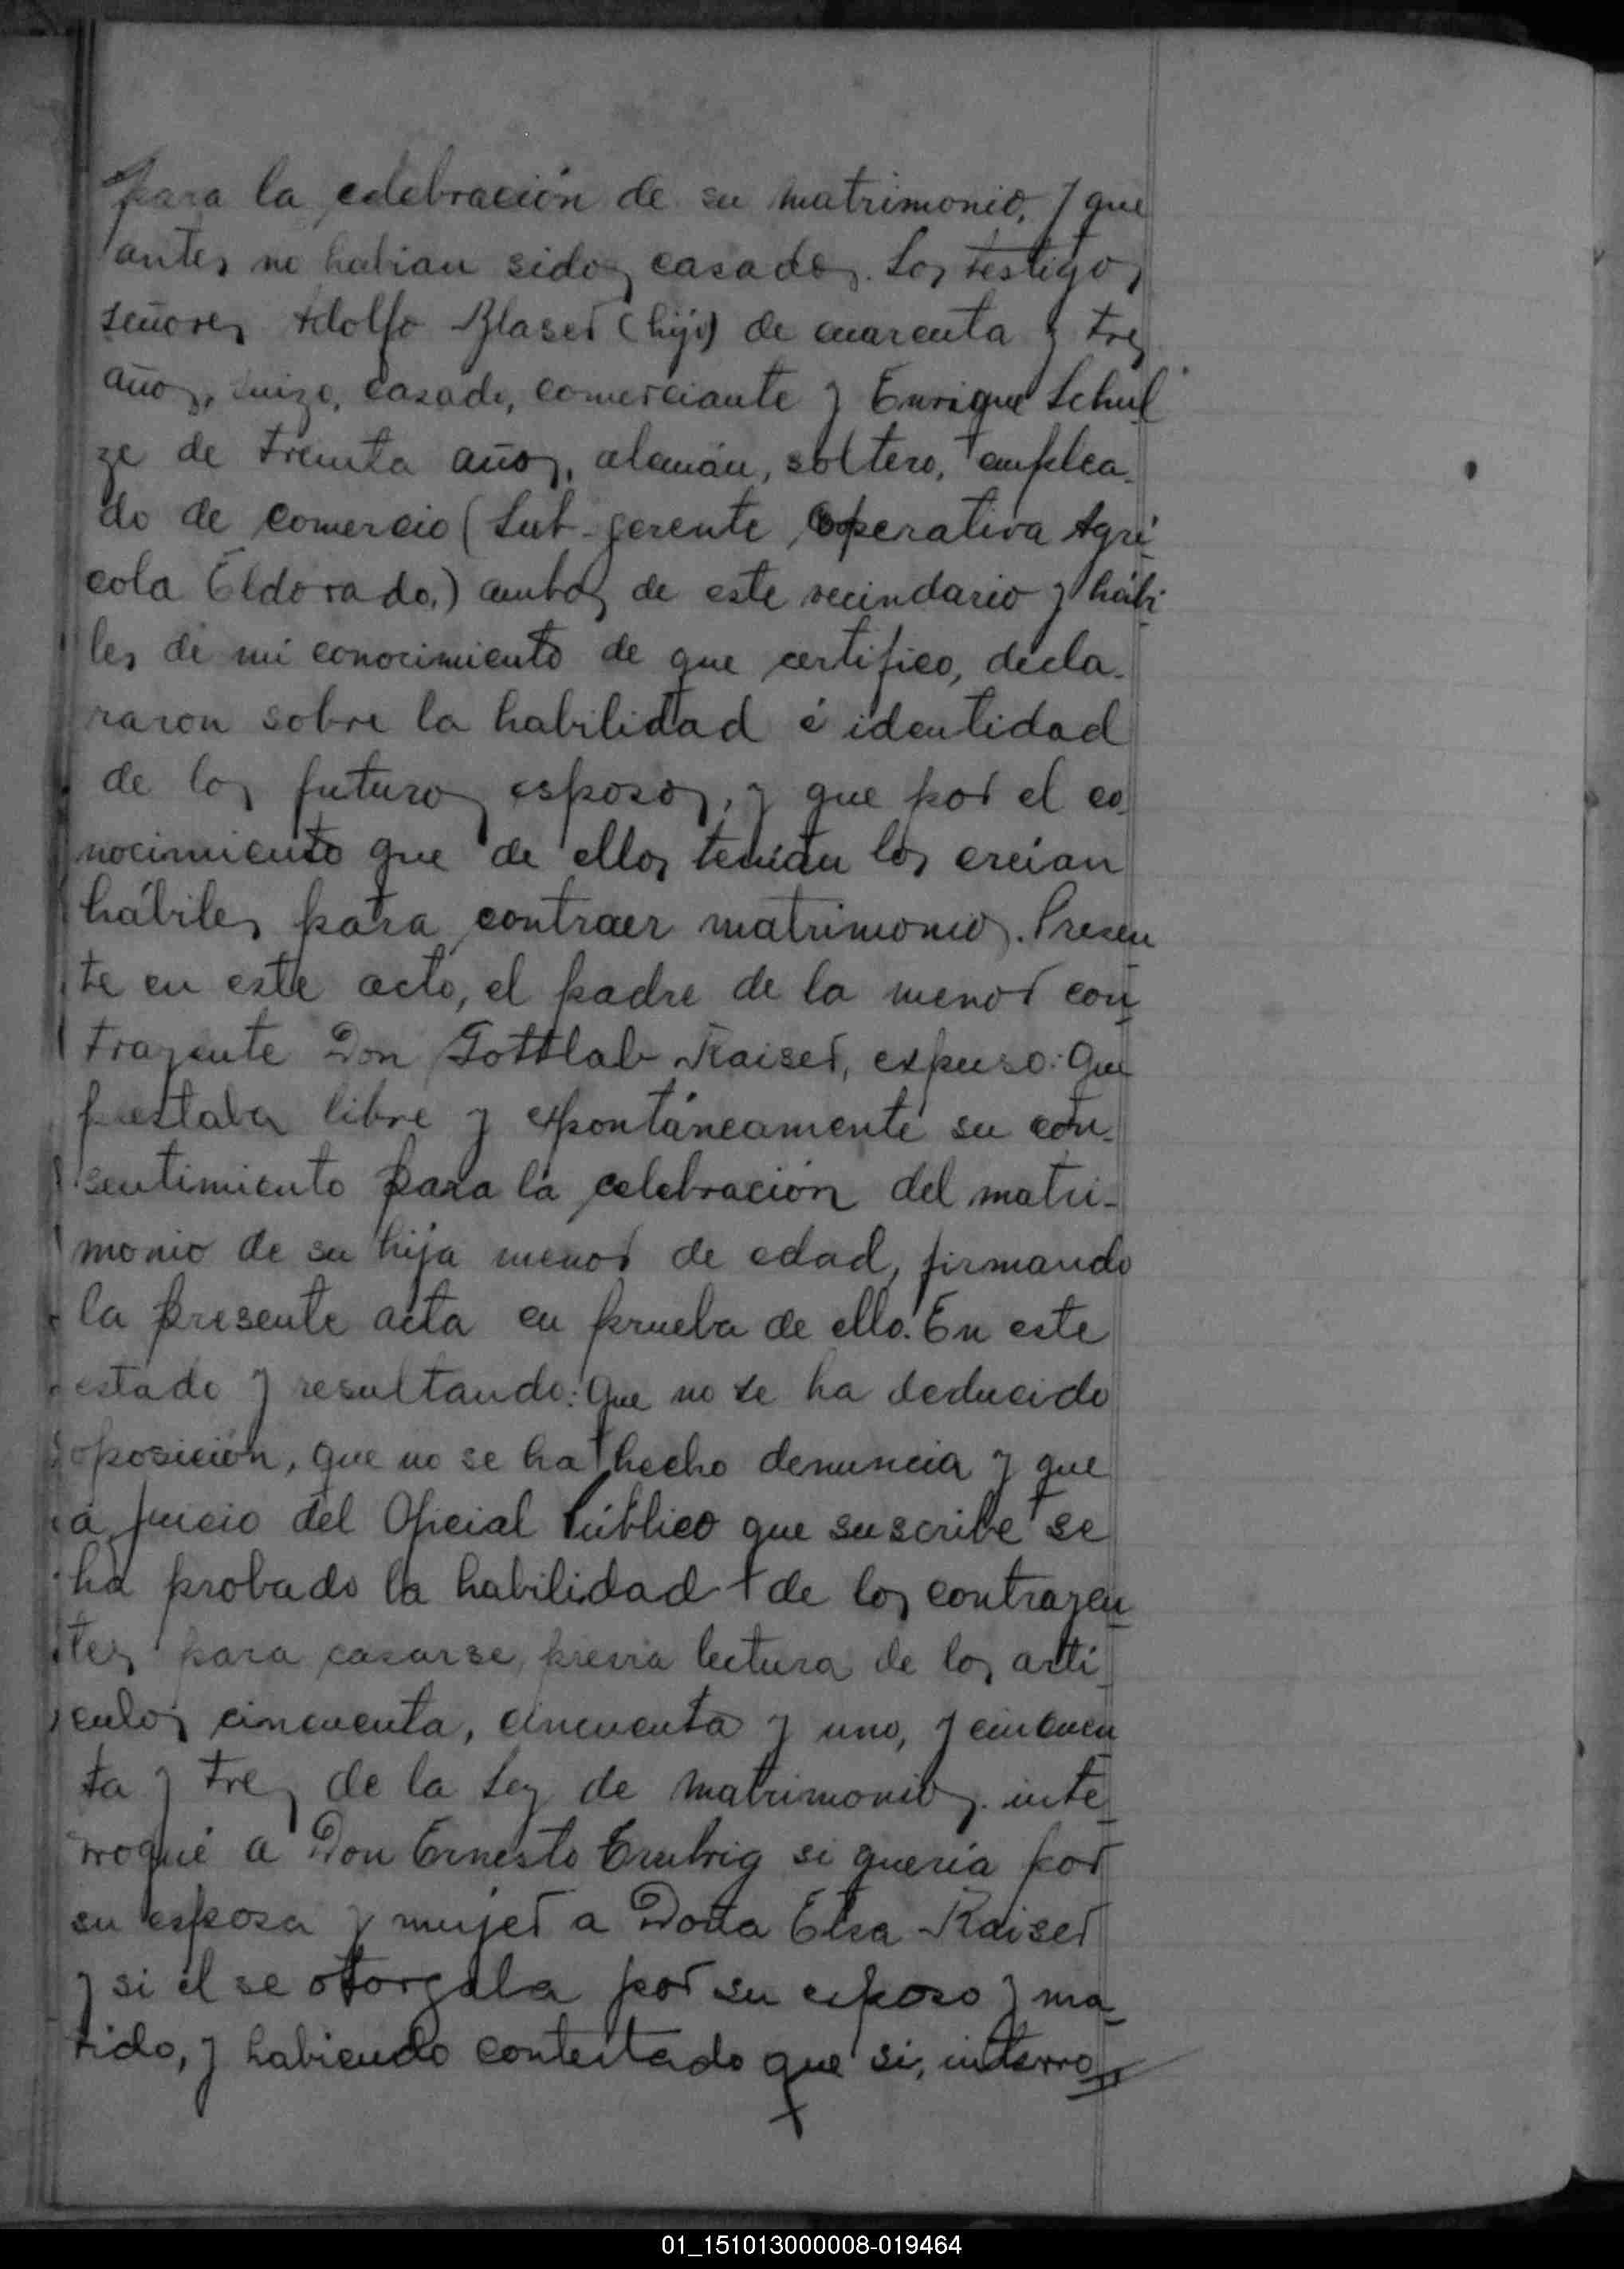 para la celebración de su matrimonio, y que
antes no habian sidos casados. Los testigos
señores Adolfo Blaser (hijo) de cuarenta y tres
años, suizo, casado, comerciante y Enrique Schul
ze de treinta años, alemán, soltero, emplea-
do de comercio (Sub-gerente Cooperativa Agrí-
cola Eldorado,) ambos de este vecindario y hábi-
les de mi conocimiento de que certifico, decla-
raron sobre la habilidad é identidad
de los futuros esposos, y que por el co-
nocimiento que de ellos tenían los creían
hábiles para contraer matrimonio. Presen
te en este acto, el padre de la menor con-
trayente Don Gottlab Kaiser, expuso: Que
prestaba libre y espontáneamente su con-
sentimiento para la celebración del matri-
monio de su hija menor de edad, firmando
la presente acta en prueba de ello. En este
estado y resultando: Que no se ha deducido
oposición, que no se ha hecho denuncia y que
a juicio del Oficial Público que suscribe se
ha probado la habilidad de los contrayen-
tes para casarse, previa lectura de los artí-
culos cincuenta, cincuenta y uno, y cincuen
ta y tres de la Ley de Matrimonio, inte-
rroqué a Don Ernesto Erubrig si quería por
su esposa y mujer a Doña Elsa Kaiser
y si él se otorgaba por su esposo y ma-
rido, y habiendo contestado que si, interro-
01_151013000008-019464